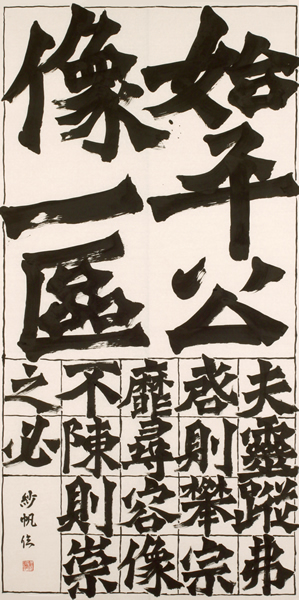 始平公
像一區
夫靈蹤弗
啓則攀宗
靡尋容像
不陳則崇
之必
紗帆臨